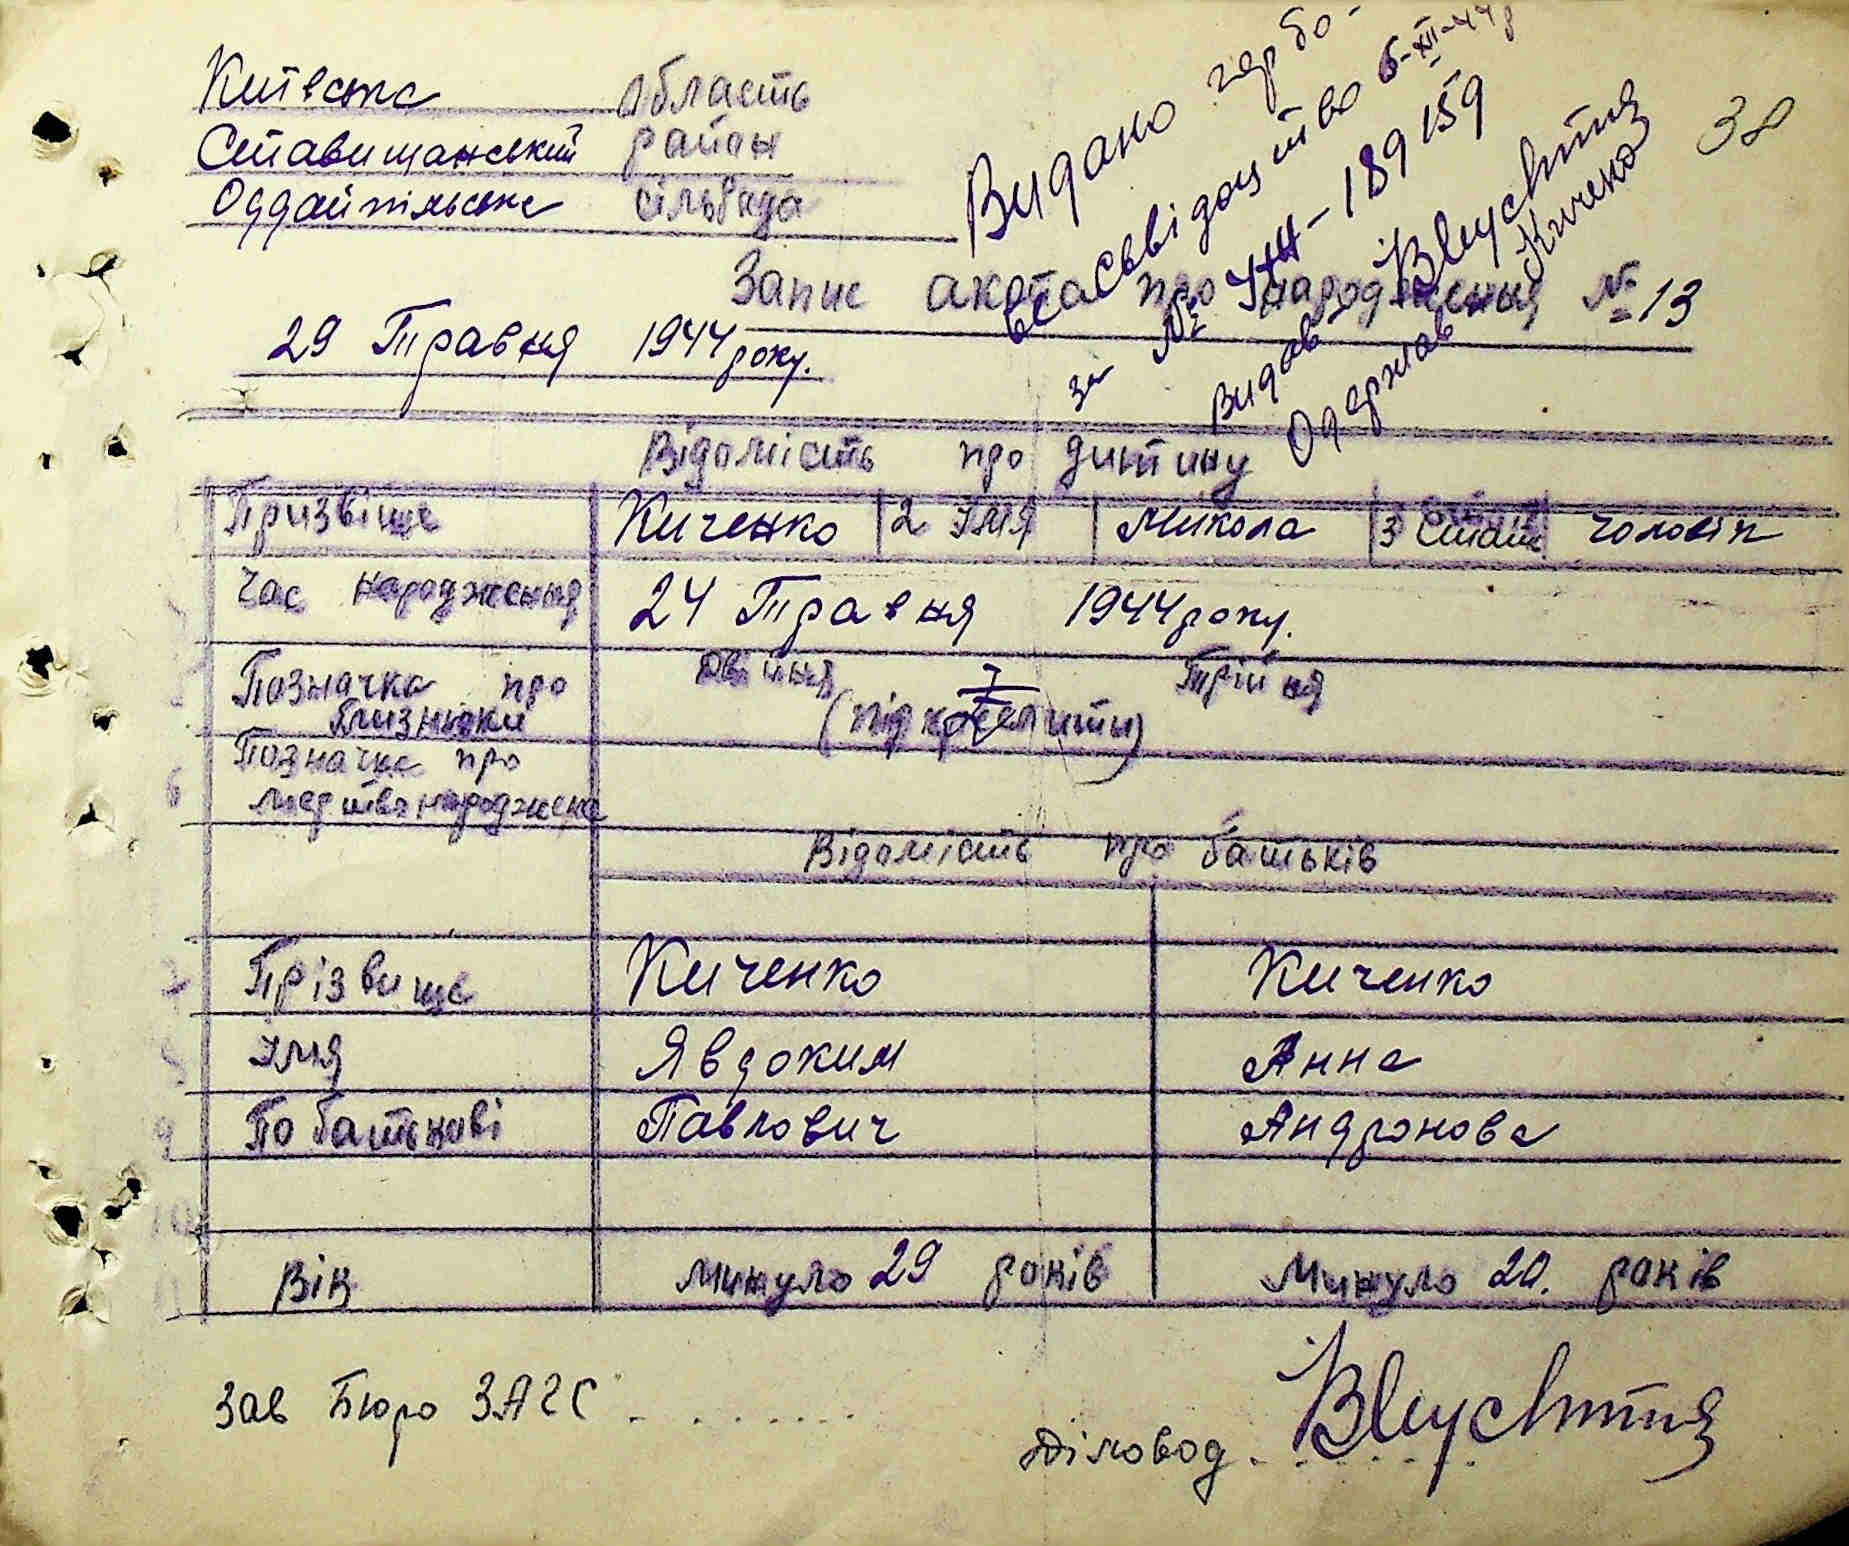 Київська область
Ставищанський район
Оддайпільська сільрада
38
Видано гербо-
ве свідоцтво 6-XII-44р
за № УНН-189159
Видав
Одержав Киченко
Запис акта про народження № 13
29 Травня 1944 року.
Відомість про дитину
Призвіще Киченко 2 Імя Микола 3 Стать чоловік
Час народження 24 Травня 1944 року.
Позначка про близнюки двійня Трійня
(підкреслити)
6 Позначка про
мертвонароджене
Відомість про батьків
7 Прізвище Киченко Киченко
Імя Явдоким Анна
9 По батькові Павлович Андронова
10
11 Вік минуло 29 років Минуло 20. років
Зав Бюро ЗАГС . . . . . . .
Діловод